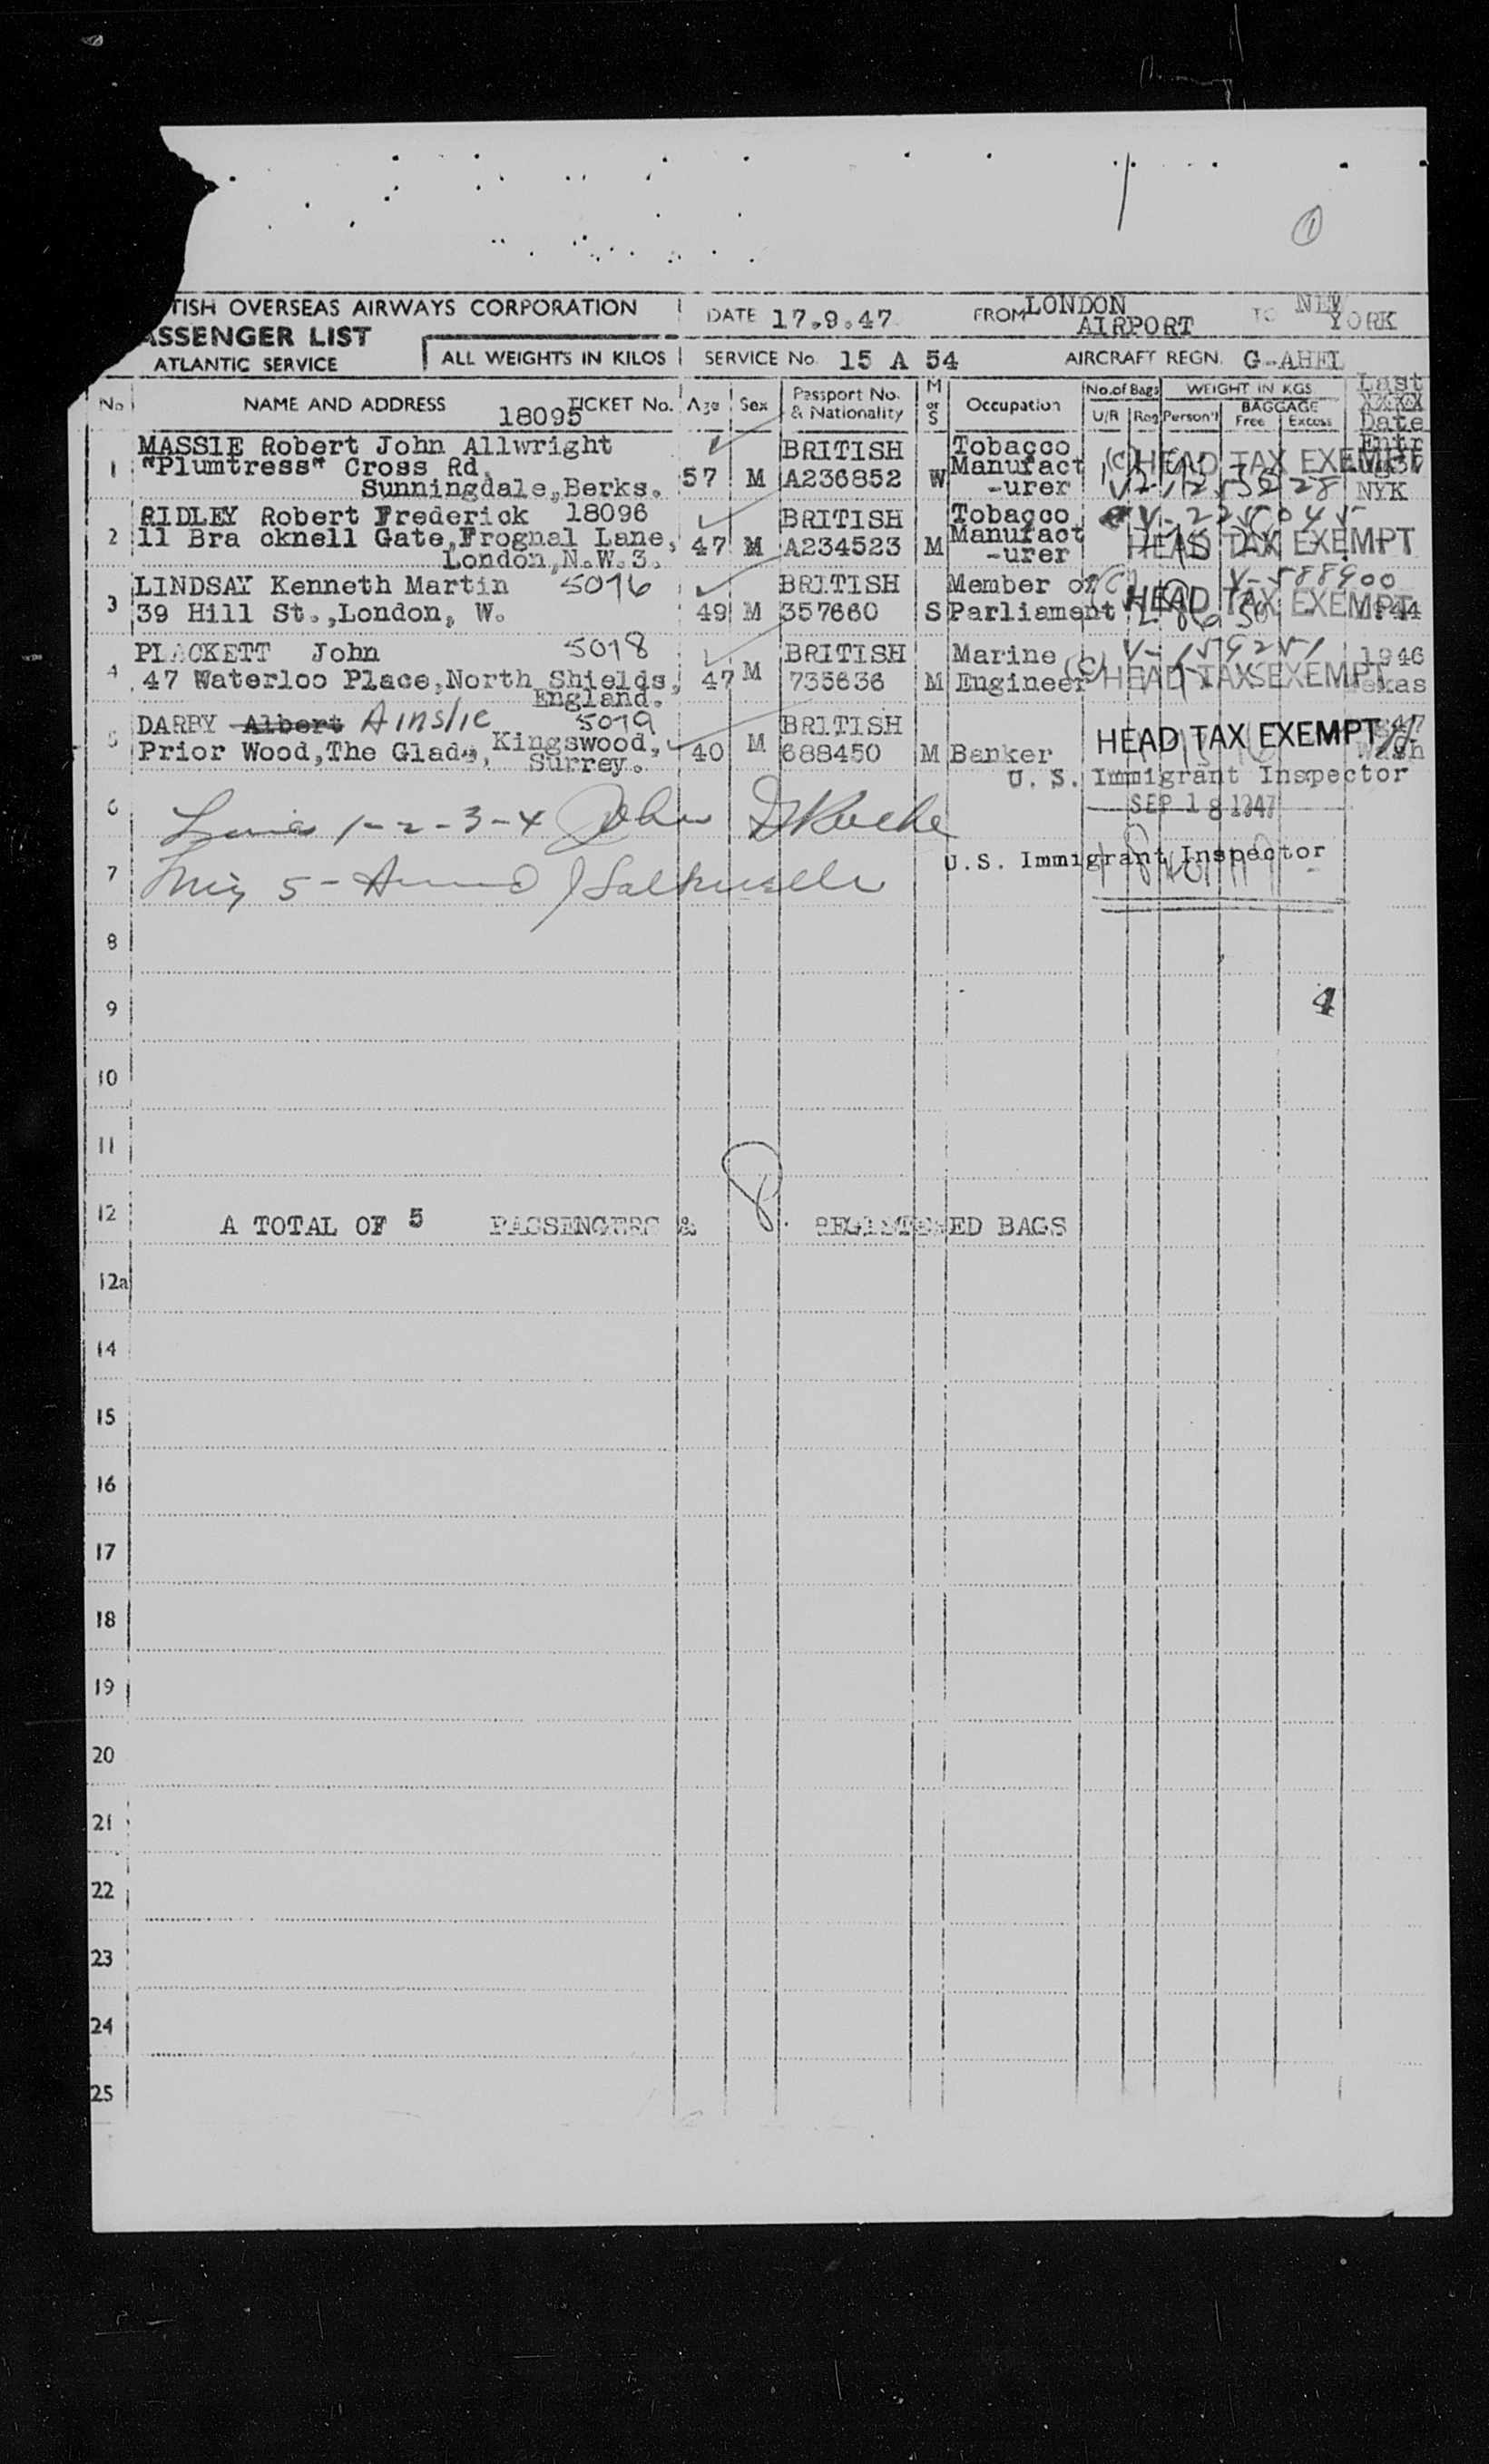 ①
TISH OVERSEAS AIRWAYS CORPORATION
ASSENGER LIST
ATLANTIC SERVICE
ALL WEIGHTS IN KILOS
DATE 17.9.47
FROM LONDON AIRPORT
TO NEW YORK
SERVICE No. 15 A 54
AIRCRAFT REGN. G-AHEL
No NAME AND ADDRESS TICKET No. Age Sex Passport No. & Nationality M or S Occupation No. of Bags U/R Reg WEIGHT IN KGS Person'l BAGGAGE Free Excess Last XXXX Date Entr
18095
MASSIE Robert John Allwright BRITISH Tobacco
1 "Plumtress" Cross Rd, 57 M A236852 W Manufact (C) HEAD TAX EXEMPT
Sunningdale, Berks. -urer NYK
RIDLEY Robert Frederick 18096 BRITISH Tobacco
2 11 Bra cknell Gate, Frognal Lane, 47 M A234523 M Manufact HEAD TAX EXEMPT
London, N.W.3. -urer
LINDSAY Kenneth Martin 5016 BRITISH Member of (C) V-588900
3 39 Hill St., London, W. 49 M 357660 S Parliament HEAD TAX EXEMPT 1944
PLACKETT John 5018 BRITISH Marine 1946
4 47 Waterloo Place, North Shields, 47 M 735636 M Engineer (C) HEAD TAX EXEMPT
England.
DARBY Albert Ainslie 5019 BRITISH
5 Prior Wood, The Glade, Kingswood, 40 M 688450 M Banker HEAD TAX EXEMPT
Surrey.
U. S. Immigrant Inspector
SEP 18 1947
6 Lines 1-2-3-4 John
7 5-
U.S. Immigrant Inspector
8
9 4
10
11
12 A TOTAL OF 5 PASSENGERS & 8 REGISTERED BAGS
12a
14
15
16
17
18
19
20
21
22
23
24
25